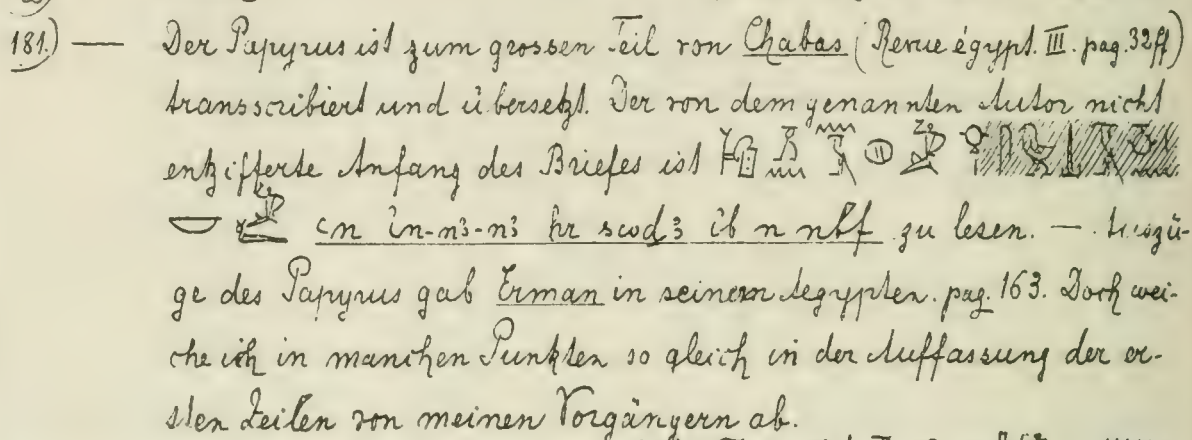 181.) — Der Papyrus ist zum grossen Teil von Chabas (Revue égypt. III. pag. 32ff)
transscribiert und übersetzt. Der von dem genannten Autor nicht
entzifferte Anfang des Briefes ist
cn in-n3-n3 hr swd3 ib n nbf zu lesen. — Auszü-
ge des Papyrus gab Erman in seinem Aegypten. pag. 163. Doch wei-
che ich in manchen Punkten so gleich in der Auffassung der er-
sten Zeilen von meinen Vorgängern ab.